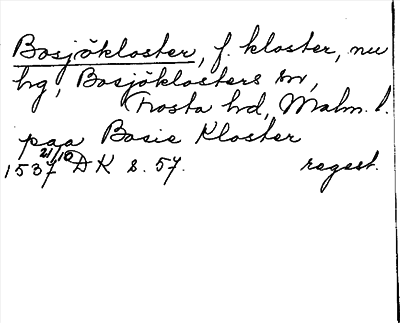 Bosjökloster, f. kloster, nu
hg, Bosjöklosters sn,
Frosta hd, Malm. l.
paa Bosie Kloster
1537 21/10 DK s. 57. regest.